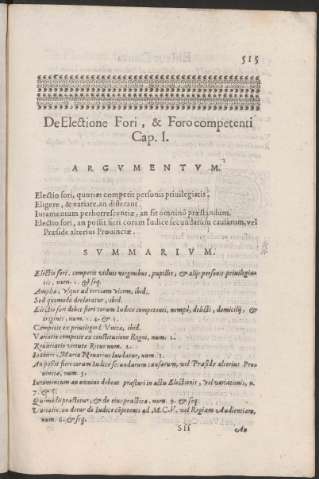 515
De Electione Fori, & Foro competenti
Cap. I.
ARGVMENTVM.
Electio fori, quatriæ competit personis privilegiatis,
Eligere, & variare, an differant.
Iuramentum perhorrescentiæ, an sit omninò præstandum.
Electio fori, an possit fieri coram Iudice secundarum causarum, vel
Præside alterius Provinciæ.
SVMMARIVM.
Electio fori, competit viduis virginibus, pupillis, & alijs personis privilegia-
tis, num. 1. & seq.
Amplia, Vsque ad tertiam vicem, ibid.
Sed quomodo declaratur, ibid.
Electio fori debet fieri coram Iudice competenti, nempè, delicti, domicilij, &
originis, num. 1. 4. & 5.
Competit ex privilegio l. Vnicæ, ibid.
Variatio competit ex constitutione Regni, num. 2.
Novarius laudatur, num. 2.
An possit fieri coram Iudice secundarum causarum, vel Præside alterius Pro-
vinciæ, num. 3.
Iuramentum an omnino debeat præstari in actu Electionis, vel variationis, n.
7. & seq.
Quomodo practicetur, & de eius practica. num. 9. & seq.
Variatio an detur de Iudice cōpetenti ad M.C.V. vel Regiam Audientiam,
num. 6. & seq.
Sff
An